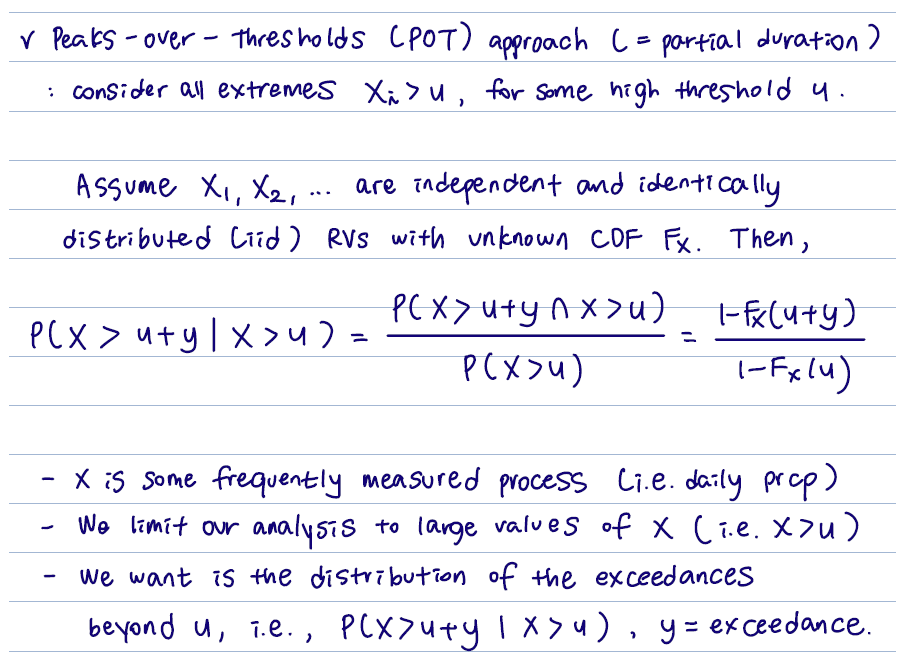 v Peaks-over-thresholds (POT) approach (= partial duration)
: consider all extremes Xᵢ > u, for some high threshold u.
Assume X₁, X₂, ... are independent and identically
distributed (iid) RVs with unknown CDF Fₓ. Then,
P(X > u+y | X > u) = P(X > u+y ∩ X > u) / P(X > u) = 1-Fₓ(u+y) / 1-Fₓ(u)
- X is some frequently measured process (i.e. daily prcp)
- We limit our analysis to large values of X (i.e. X > u)
- We want is the distribution of the exceedances
beyond u, i.e., P(X > u+y | X > u), y = exceedance.